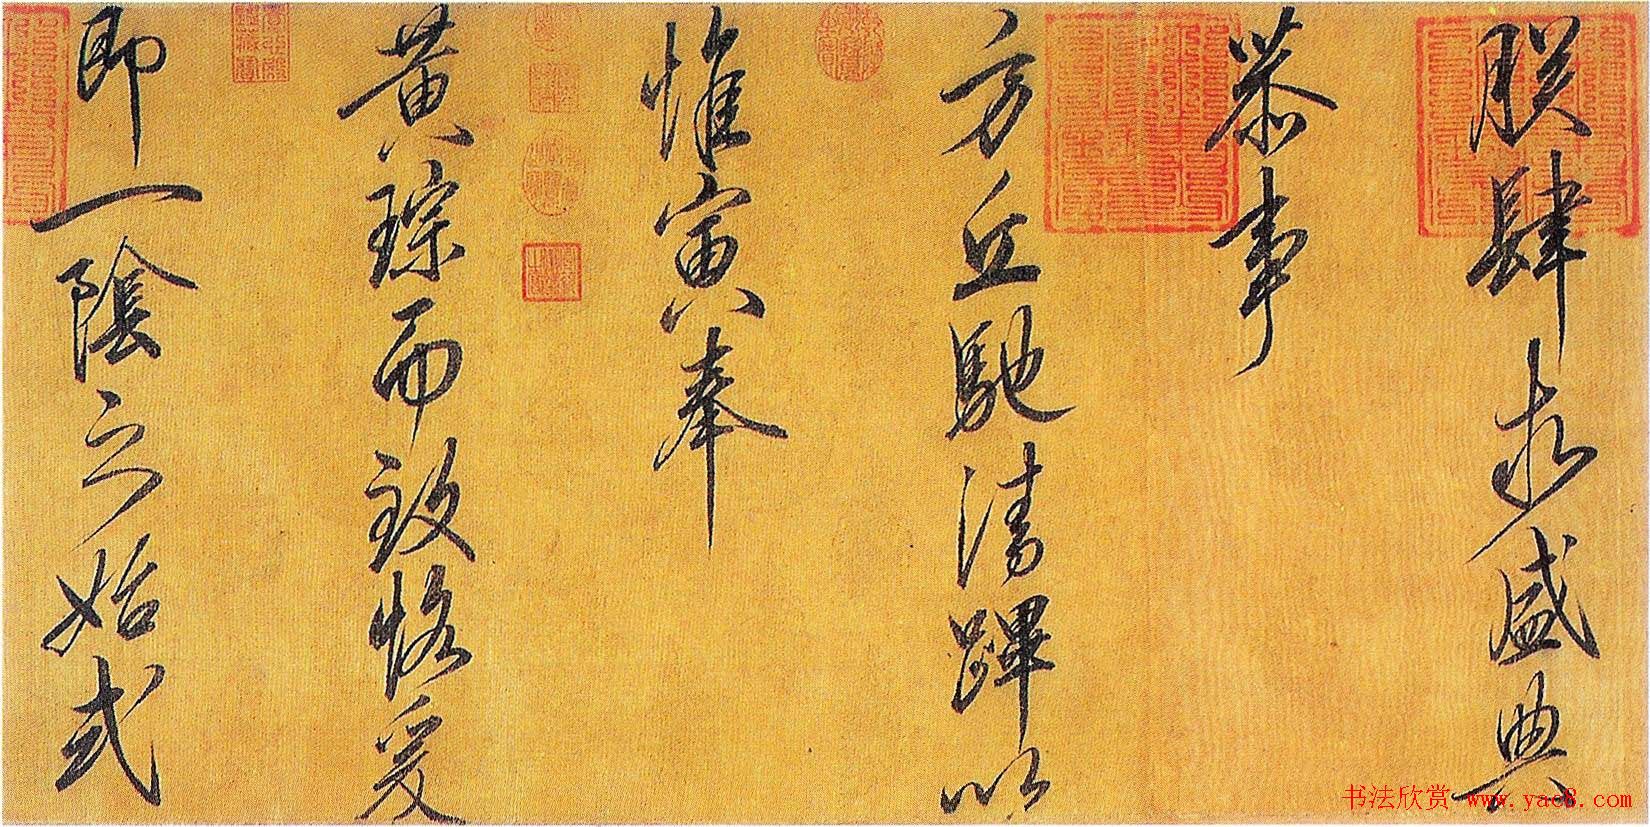 朕肆求盛典
恭事
方丘馳清蹕以
惟寅奉
黄琮而致恪爰
即一陰之始式
书法欣赏 www.yac8.com